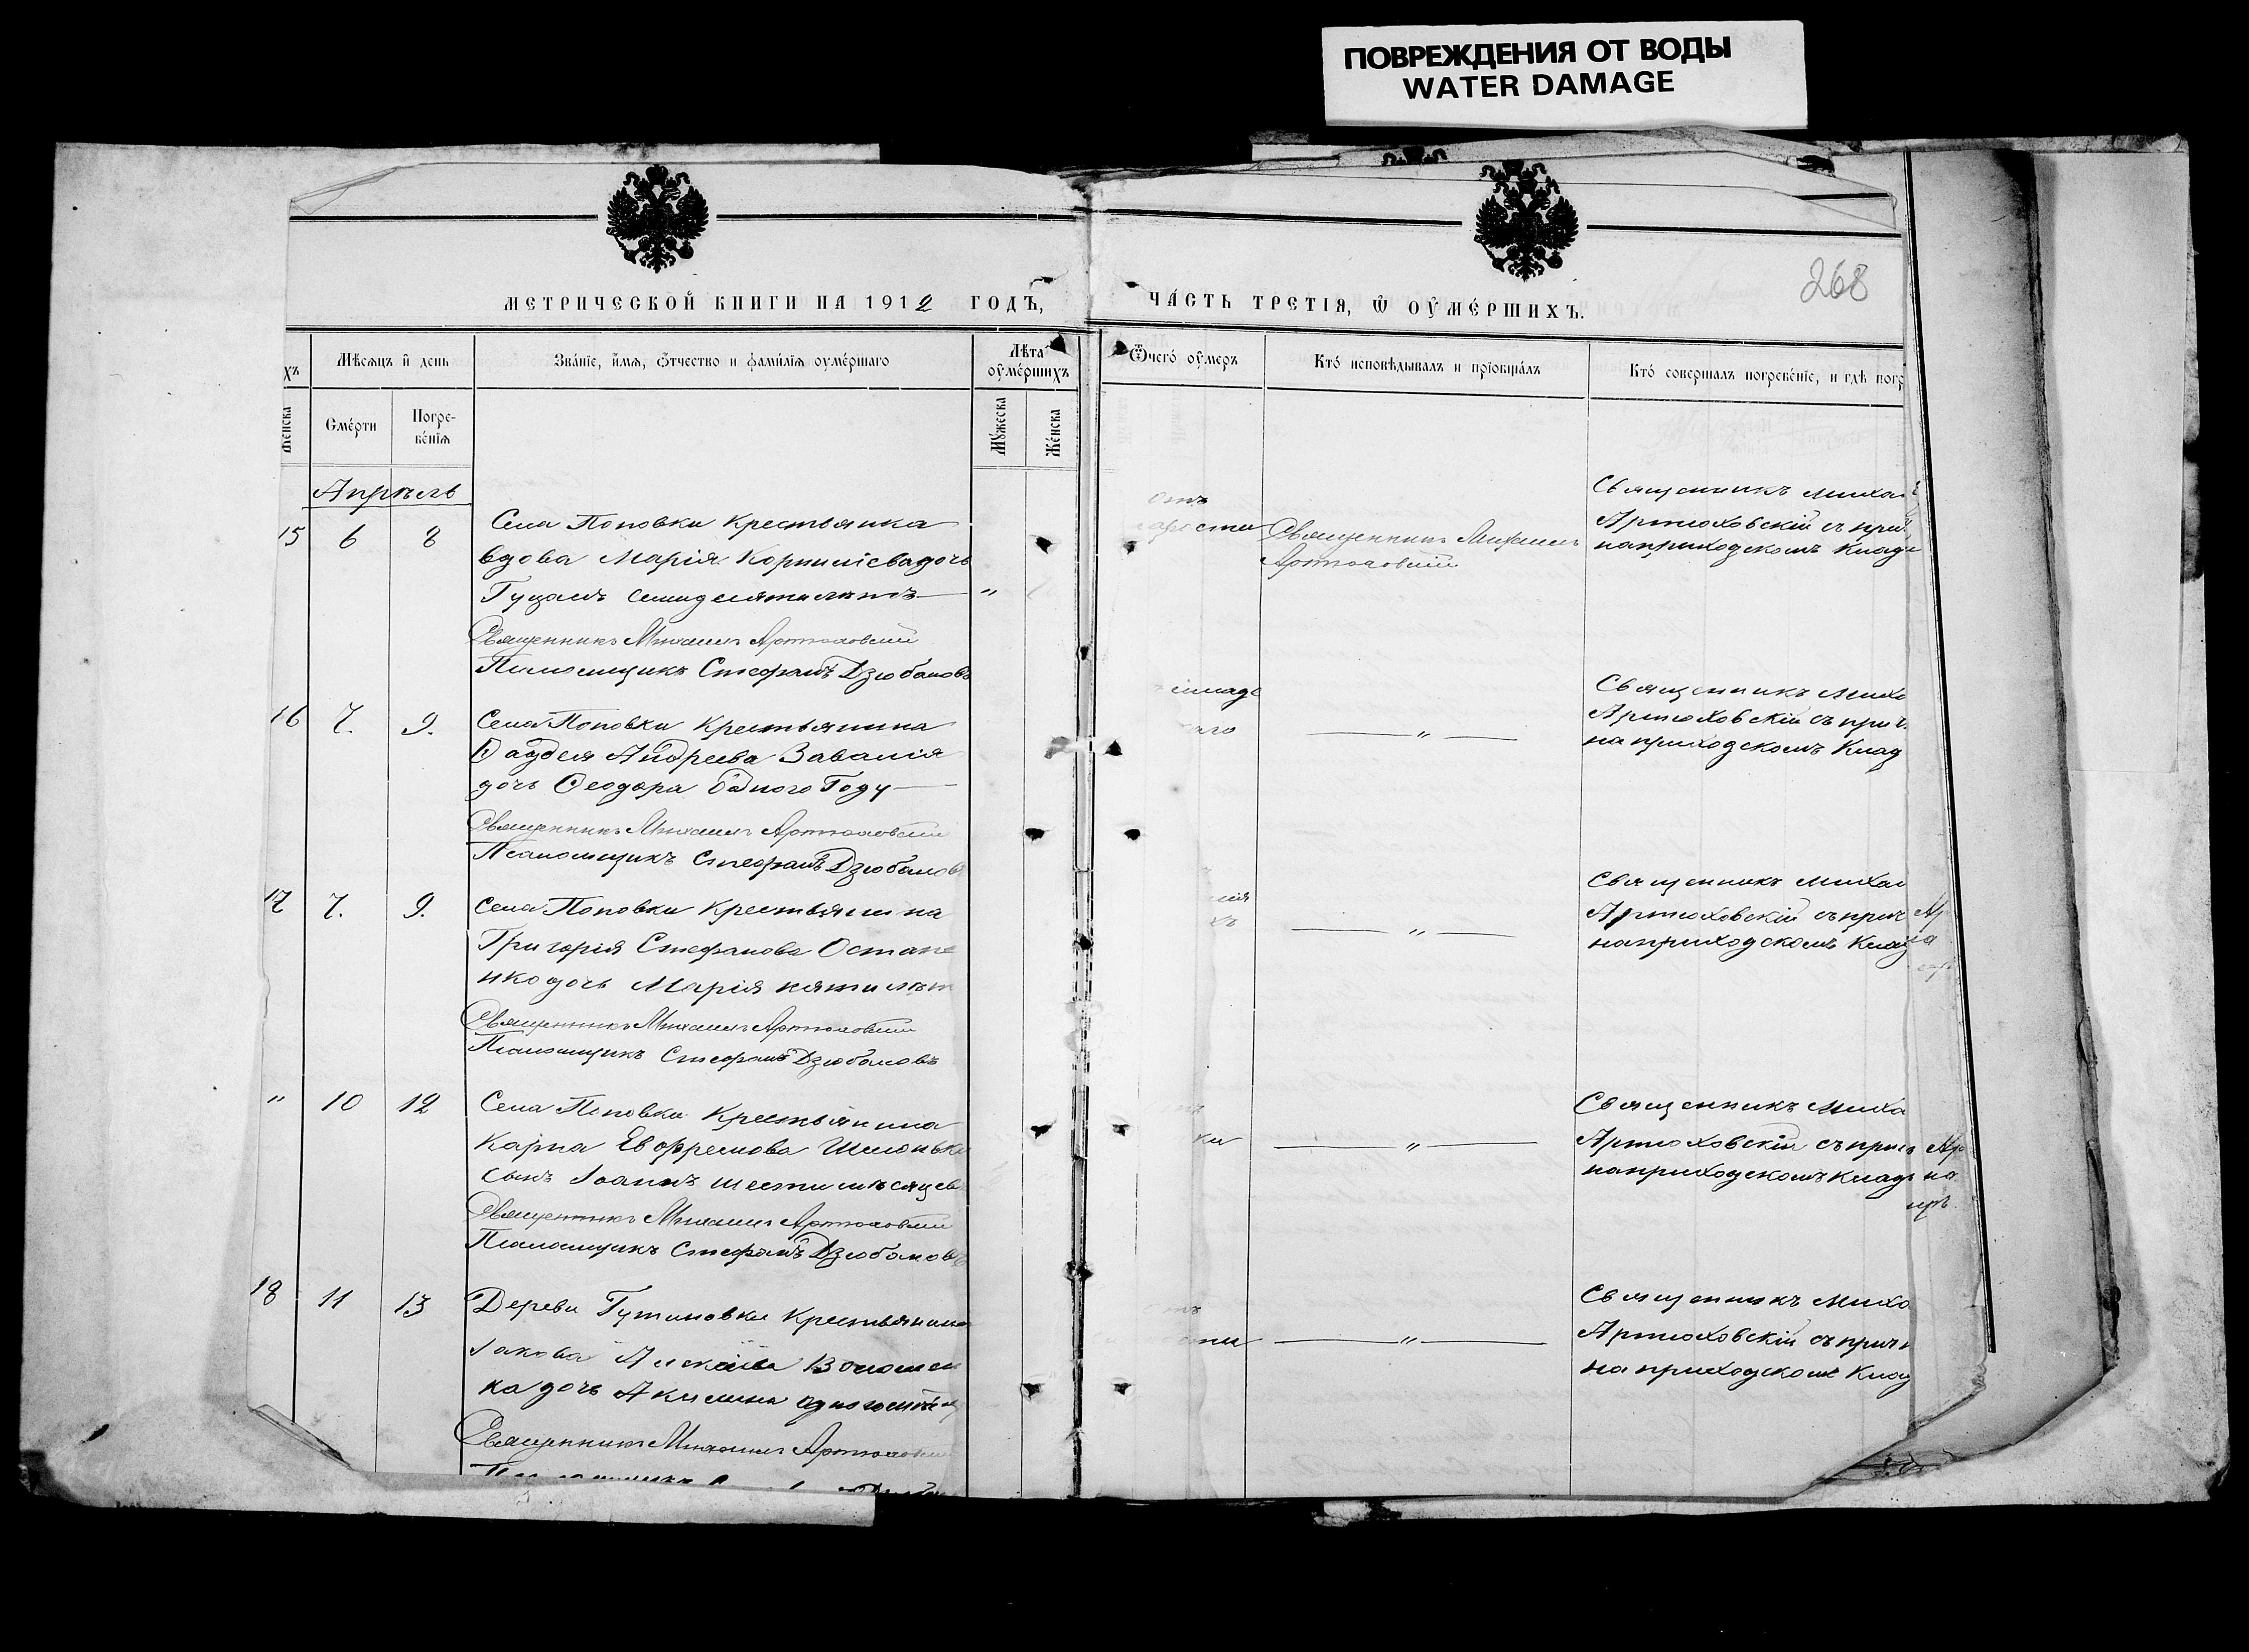 ПОВРЕЖДЕНИЯ ОТ ВОДЫ
WATER DAMAGE
268
МЕТРИЧЕСКОЙ КНИГИ НА 1912 ГОДЪ,
ЧА́СТЬ ТРЕТІЯ, Ѿ ОУ҆МЕ́РШИХЪ.
хъ
Женска
Мѣсяцъ и҆ день
Сме́рти
Погре-
бе́нія
Зва́ніе, и҆́мя, ѻ҆́тчество и фами́лія оуме́ршаго
Лѣта
оу҆ме́ршихъ
Му́жеска
Же́нска
Ѿчегѡ́ оу҆́меръ
Кто́ исповѣ́дывалъ и прїобща́лъ
Кто́ соверша́лъ погребе́ніе, и гдѣ погр
Апрѣль
15 6 8
Села Поповки Крестьянка
вдова Марія Корниліева дочь
Гуцанъ семидесяти лѣтъ
"
Священникъ Михаилъ Артюховскій
Псаломщикъ Стефанъ Дзюбановъ
отъ
арости
Священникъ Михаилъ
Артюховскій
Священникъ Михаи
Артюховскій съ прич
на приходскомъ Клад
16 7. 9.
Села Поповки Крестьянина
Андреева Завалія
дочь Ѳеодора одного Году
Священникъ Михаилъ Артюховскій
Псаломщикъ Стефанъ Дзюбанов
"
Священникъ Миха
Артюховскій съ прич.
на приходскомъ Клад
17 7. 9.
Села Поповки Крестьянина
Григорія Стефанова Остапе
нко дочь Марія пяти лѣт
Священникъ Михаилъ Артюховскій
Псаломщикъ Стефанъ Дзюбановъ
хъ
"
Священникъ Михаи
Артюховскій съ прич
на приходскомъ Клад
" 10 12
Села Поповки Крестьянина
Карпа Евфремова
сынъ Іоаннъ шести мѣсяцев
Священникъ Михаилъ Артюховскій
Псаломщикъ Стефанъ Дзюбановъ
ки
"
Священникъ Миха
Артюховскій съ прич
на приходскомъ Клад
18 11 13
Дереви Гутиновки Крестьянина
Іакова Волошен
ка дочь Акилина
Священникъ Михаилъ Артюховскій
"
Священникъ Михо
Артюховскій съ прич
на приходскомъ Клад